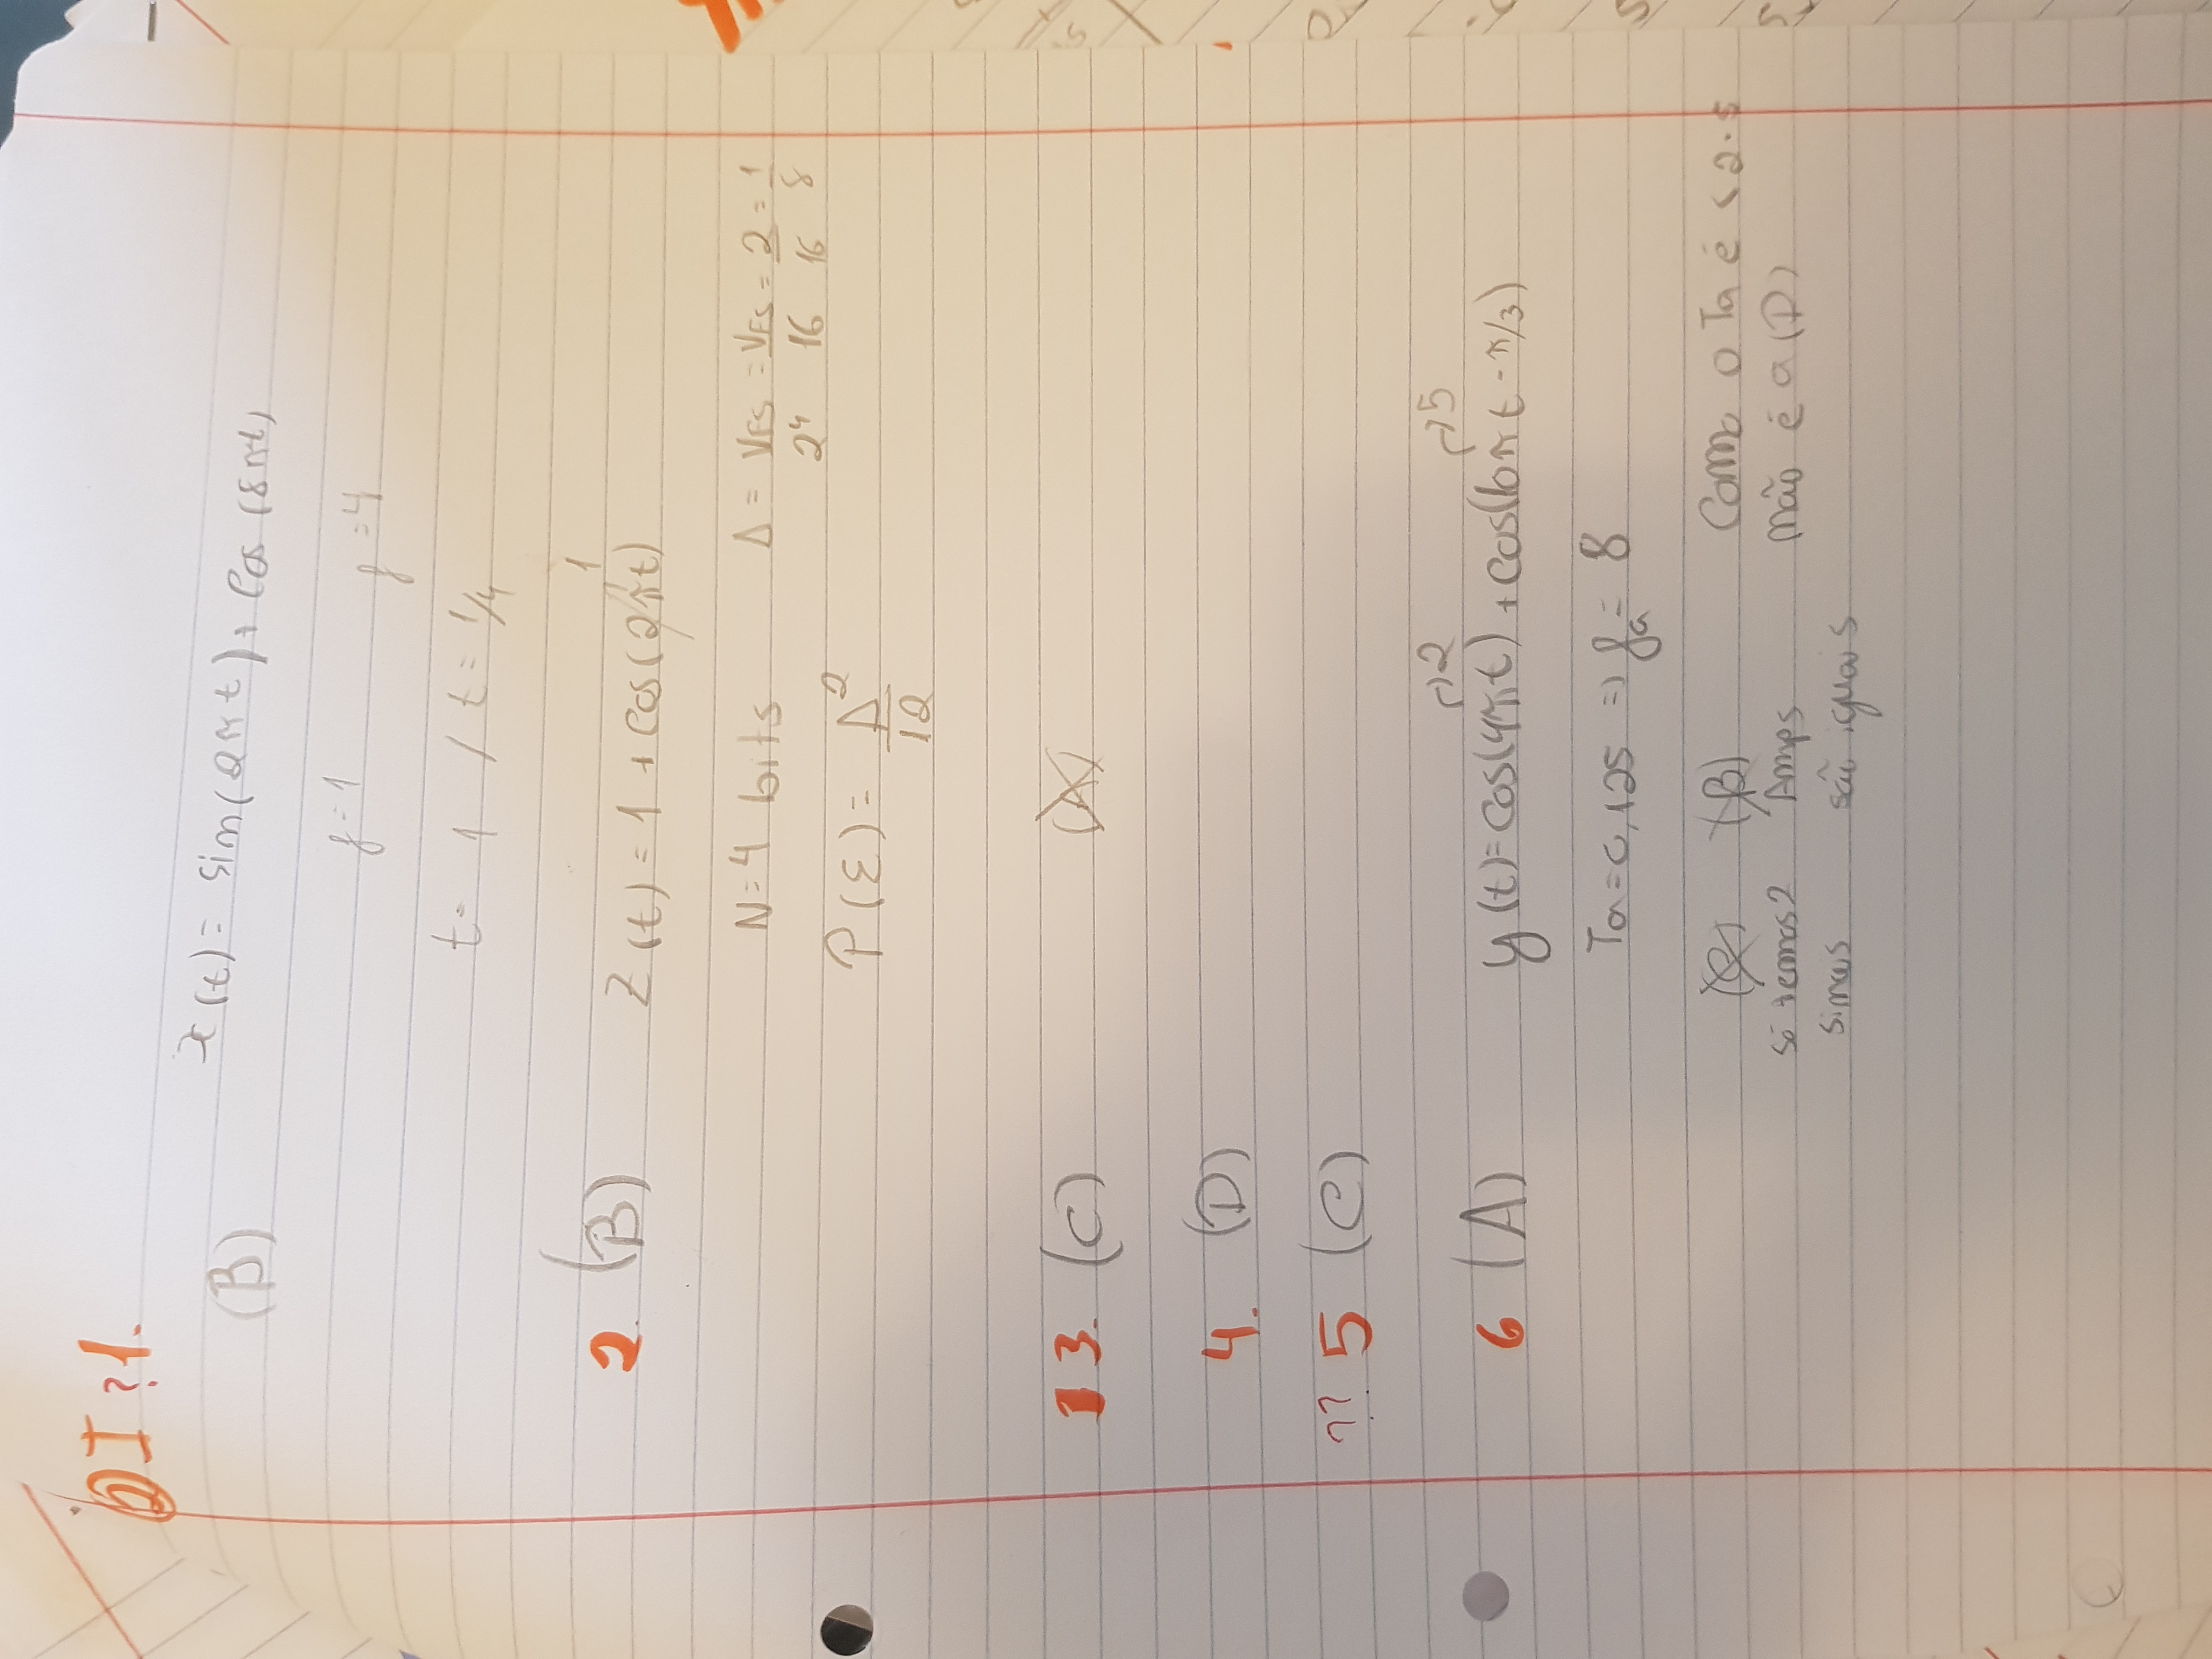 I ? 1.
(B) x(t) = sin(2πt) + cos(8πt)
f=1 f=4
t= 1 / t= 1/4
2 (B) Z(t) = 1 + cos(2πt) 1
N=4 bits Δ = VFS/2^4 = VFS/16 = 2/16 = 1/8
P(ε) = Δ²/12
1 3. (C) (A)
4. (D)
?? 5 (C)
2 5
6 (A) y(t)=cos(4πt) + cos(10πt - π/3)
Ta=0,125 => fa = 8
(C) (B) Como o Ta é < 2.5
só temos 2 Amps não é a (D)
sinais são iguais